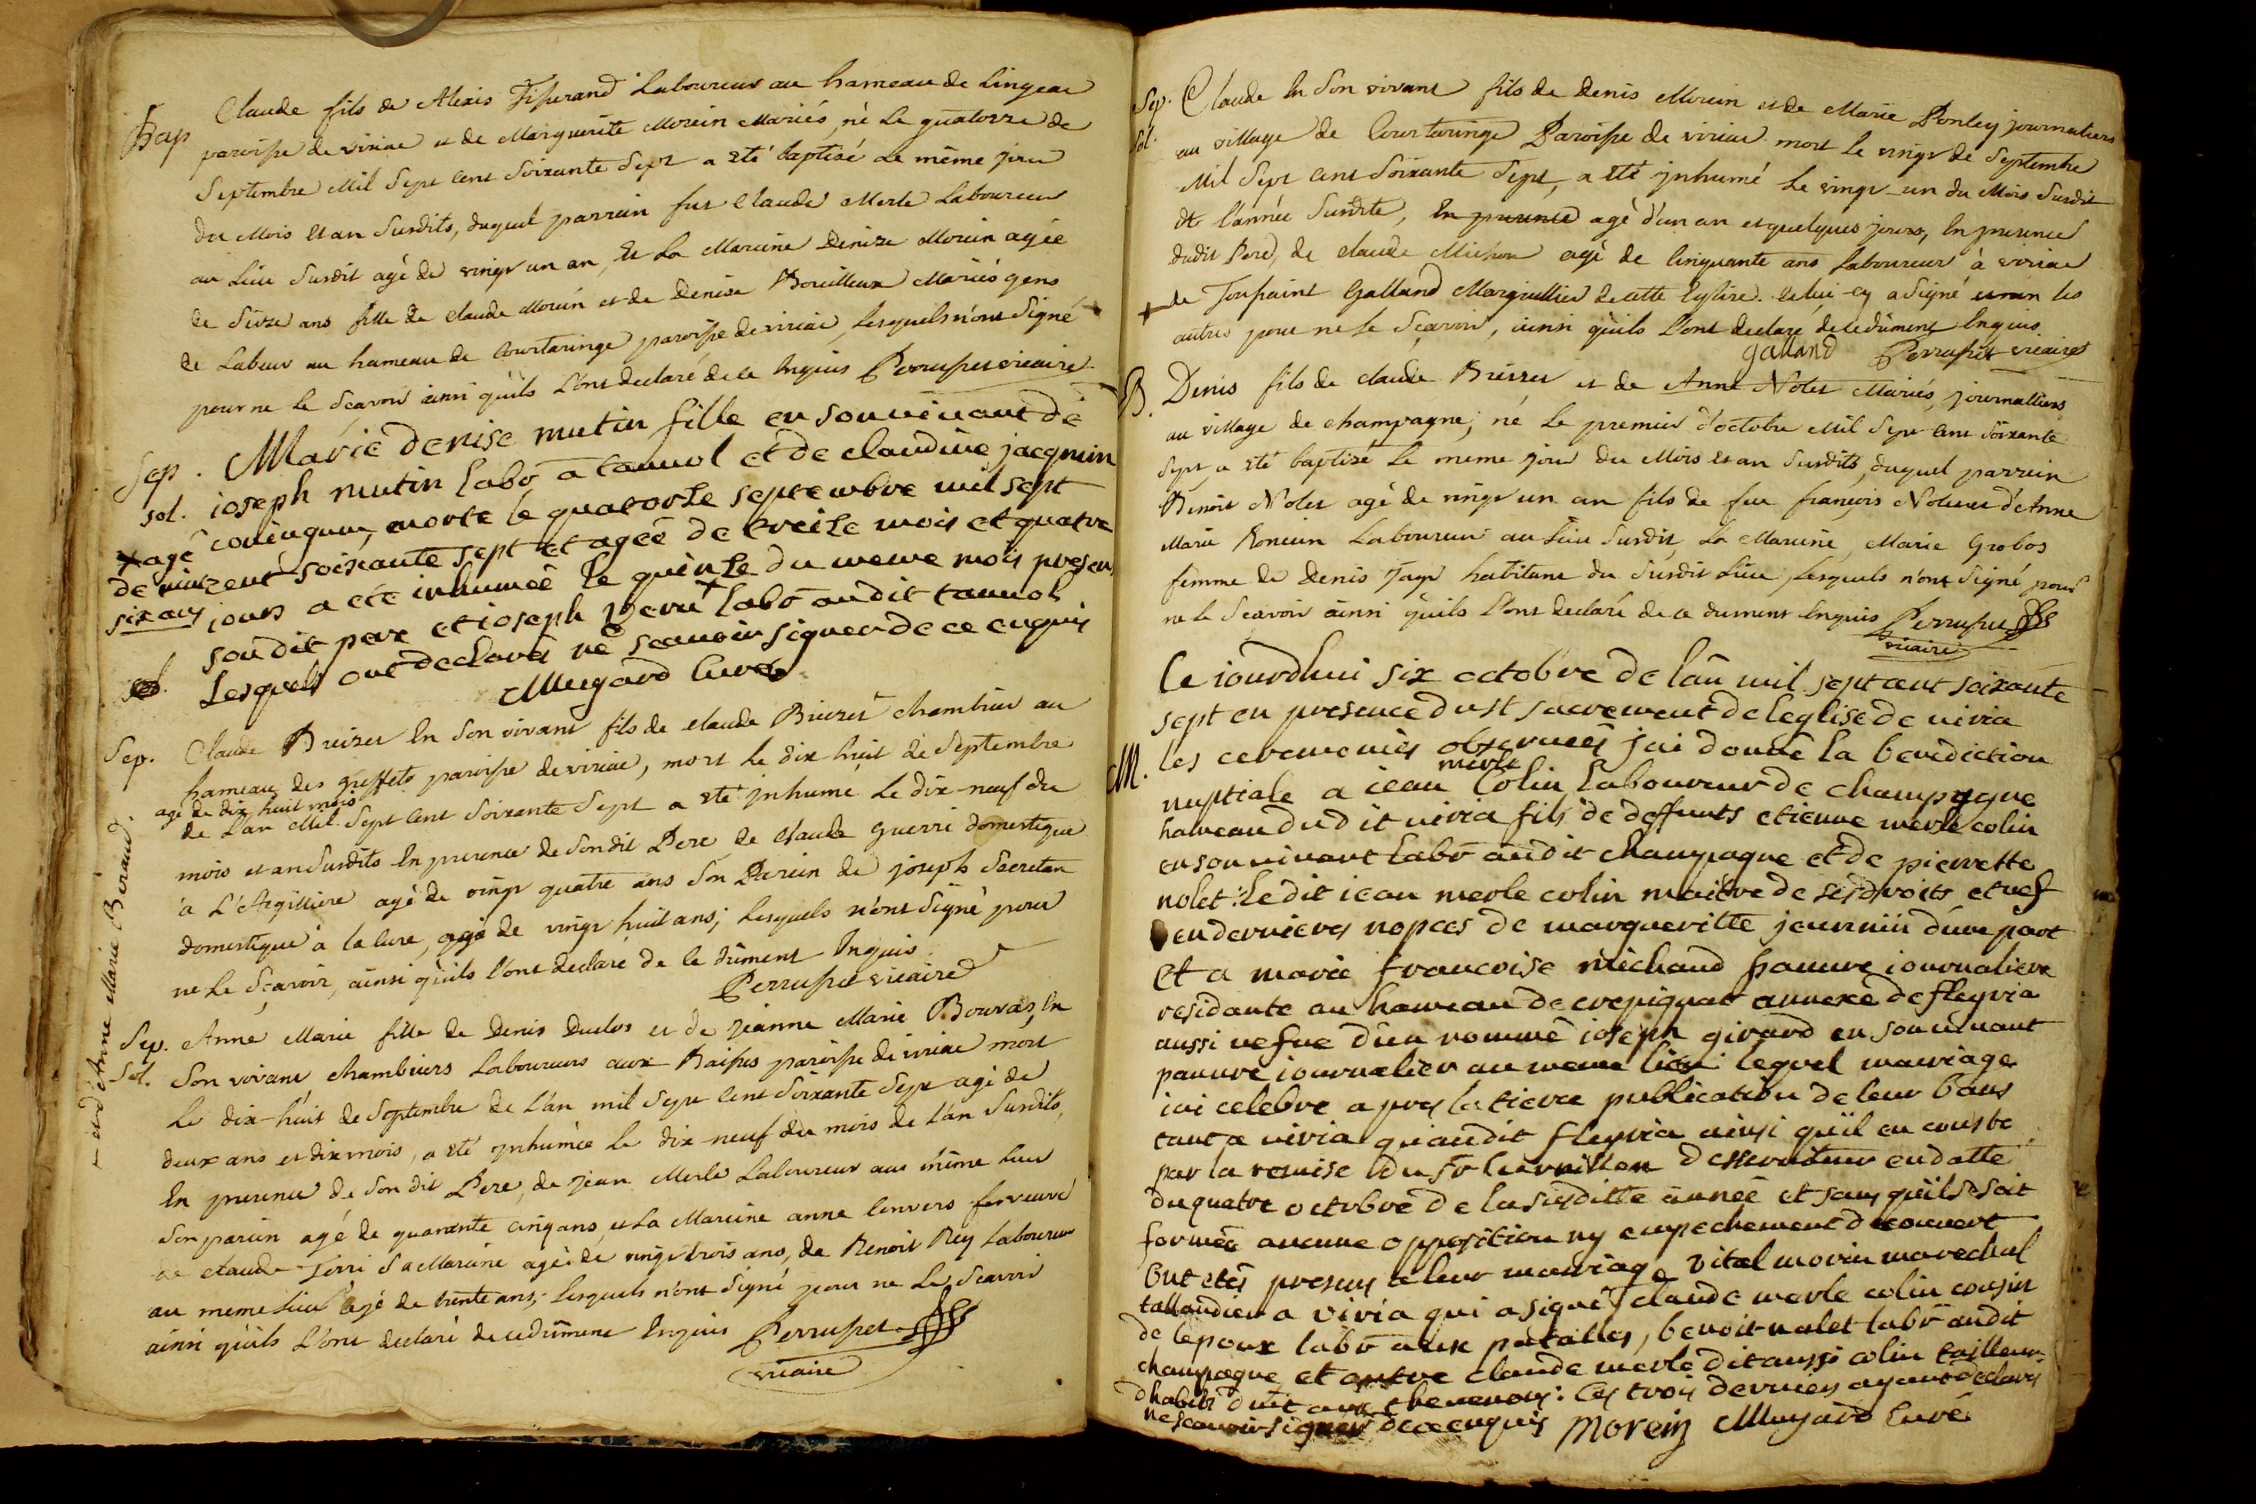 Bap Claude fils de Alexis Tisserand Laboureur au hameau de Lingeat
paroisse de viriat et de Marguerite Morein Mariés, né Le quatorze de
Septembre Mil Sept Cent Soixante Sept a eté baptisé Le même jour
du Mois et an Susdits, duquel parrain fut Claude Merle Laboureur
au Lieu Susdit agé de vingt un an, Et La Mareine Denize Morein agée
de Sieze ans fille de Claude Morein et de Denise Bouilloux Mariés gens
de Labeur au hameau de Courtaringe paroisse de viriat, Lesquels n'ont Signé
pour ne Le Sçavoir ainsi qu'ils L'ont declaré de ce Enquis Perruset vicaire
Sep. Marie denise mutin fille en son vivant de
sol. joseph mutin labo a tanvol et de claudine jacquin
conjugum, morte le quatorze septembre mil sept
x agé
de vint
six ans
cent soixante sept et agée de treize mois et quatre
jours a ete inhumée le quinze du meme mois presens
son dit pere et joseph x labo audit tanvol
Lesquels ont declarés ne scauoir signer de ce enquis
Muyard Curé
Sep. Claude Buizet En Son vivant fils de claude Buizet chambrier au
hameau des Greffets paroisse de viriat, mort Le dix huit de Septembre
agé de dix huit mois
de L'an Mil Sept Cent Soixante Sept a eté jnhumé Le dix-neuf du
mois et an Susdits En presence de Son dit Pere de Claude Guerri domestique
a L'Argilliere agé de vingt quatre ans Son Parein de joseph Secretan
domestique a la Cure, agé de vingt huit ans; Lesquels n'ont Signé pour
ne Le Sçavoir, ainsi qu'ils L'ont declaré de Ce dûment Enquis
Perruset vicaire
Sep. Anne Marie fille de Denis Duclos et de Jeanne Marie Bouvard, En
Sol. Son vivant chambriers Laboureurs aux Baisses paroisse de viriat mort
Le dix-huit de Septembre de L'an mil Sept Cent Soixante Sept agé de
deux ans et dix mois, a eté jnhumée Le dix-neuf du mois de L'an Susdits,
En presence de Son dit Pere, de jean Merle Laboureur au même Lieu
Son parein agé de quarante cinq ans, et La Mareine anne
de claude Sa Mareine agée de vingt trois ans, de Benoit Rey Laboureur
au meme Lieu agé de trente ans; Lesquels n'ont Signé pour ne Le Scavoir
ainsi qu'ils L'ont declaré de ce dûment Enquis Perruset
vicaire
Anne Marie Beraud
Sep. Claude En Son vivant fils de Denis Morein et de Marie Ponley journaliers
Sol. au village de Courtaringe Paroisse de viriat mort Le vingt de Septembre
Mil Sept Cent Soixante Sept, a eté jnhumé Le vingt un du Mois Susdit
de l'année Susdite, En presence agé d'un an et quelques jours, En presence
dudit Pere, de claude Michon agé de Cinquante ans Laboureur à viriat
de Toussaint Galland Marguillier de cette Eglise. Celui-cy a Signé et non les
autres pour ne Le Sçavoir, ainsi qu'ils L'ont declaré de ce dûment Enquis
galland Perruset vicaire
B. Denis fils de claude Buizet et de Anne Nolet Mariés, journalliers
au village de champagne; né Le premier d'octobre Mil Sept Cent Soixante
Sept, a eté baptisé Le meme jour du Mois et an Susdits, duquel parrein
Benoit Nolet agé de vingt un an fils de feu françois Nolet et d'Anne
Marie Laboureur au Lieu Susdit, La Mareine, Marie Grobos
femme de Denis habitant du Susdit Lieu, Lesquels n'ont Signé pour
ne le Scavoir ainsi qu'ils L'ont declaré de ce dument Enquis Perruset
vicaire
Le jourdhui six octobre de lan mil sept cent soixante
sept en presence du st sacrement de leglise de viria
les ceremonies observées jai donné la benediction
M. nuptiale a jean merle Colin Laboureur de champagne
hameau dudit viria fils de deffunts etienne merle colin
en son vivant labo audit champagne et de pierrette
nolet: Ledit jean merle colin maitre de ses droits et vef
en dernieres nopces de margueritte d'une part
Et a marie francoise michaud pauvre journaliere
residante au hameau de crepignat annexe de fleyria
aussi vefve d'un nommé joseph girard en son vivant
pauvre journalier au meme lieu lequel mariage
jai celebre apres la tierce publication de leur bans
tant a viria quaudit fleyria ainsi qu'il en conste
par la remise du sr desserviteur en datte
du quatre octobre de la susditte année et sans qu'il se soit
formée aucune opposition ny empechement decouvert
Ont etés presens a leur mariage vital morin marechal
tallandier a viria qui a signé, claude merle colin cousin
de lepoux labo aux , benoit nalet labo audit
champagne et autre claude merle dit aussi colin tailleur
dhabits dudit Ces trois derniers ayant declarés
ne scauoir signer de ce enquis Morein Muyard Curé